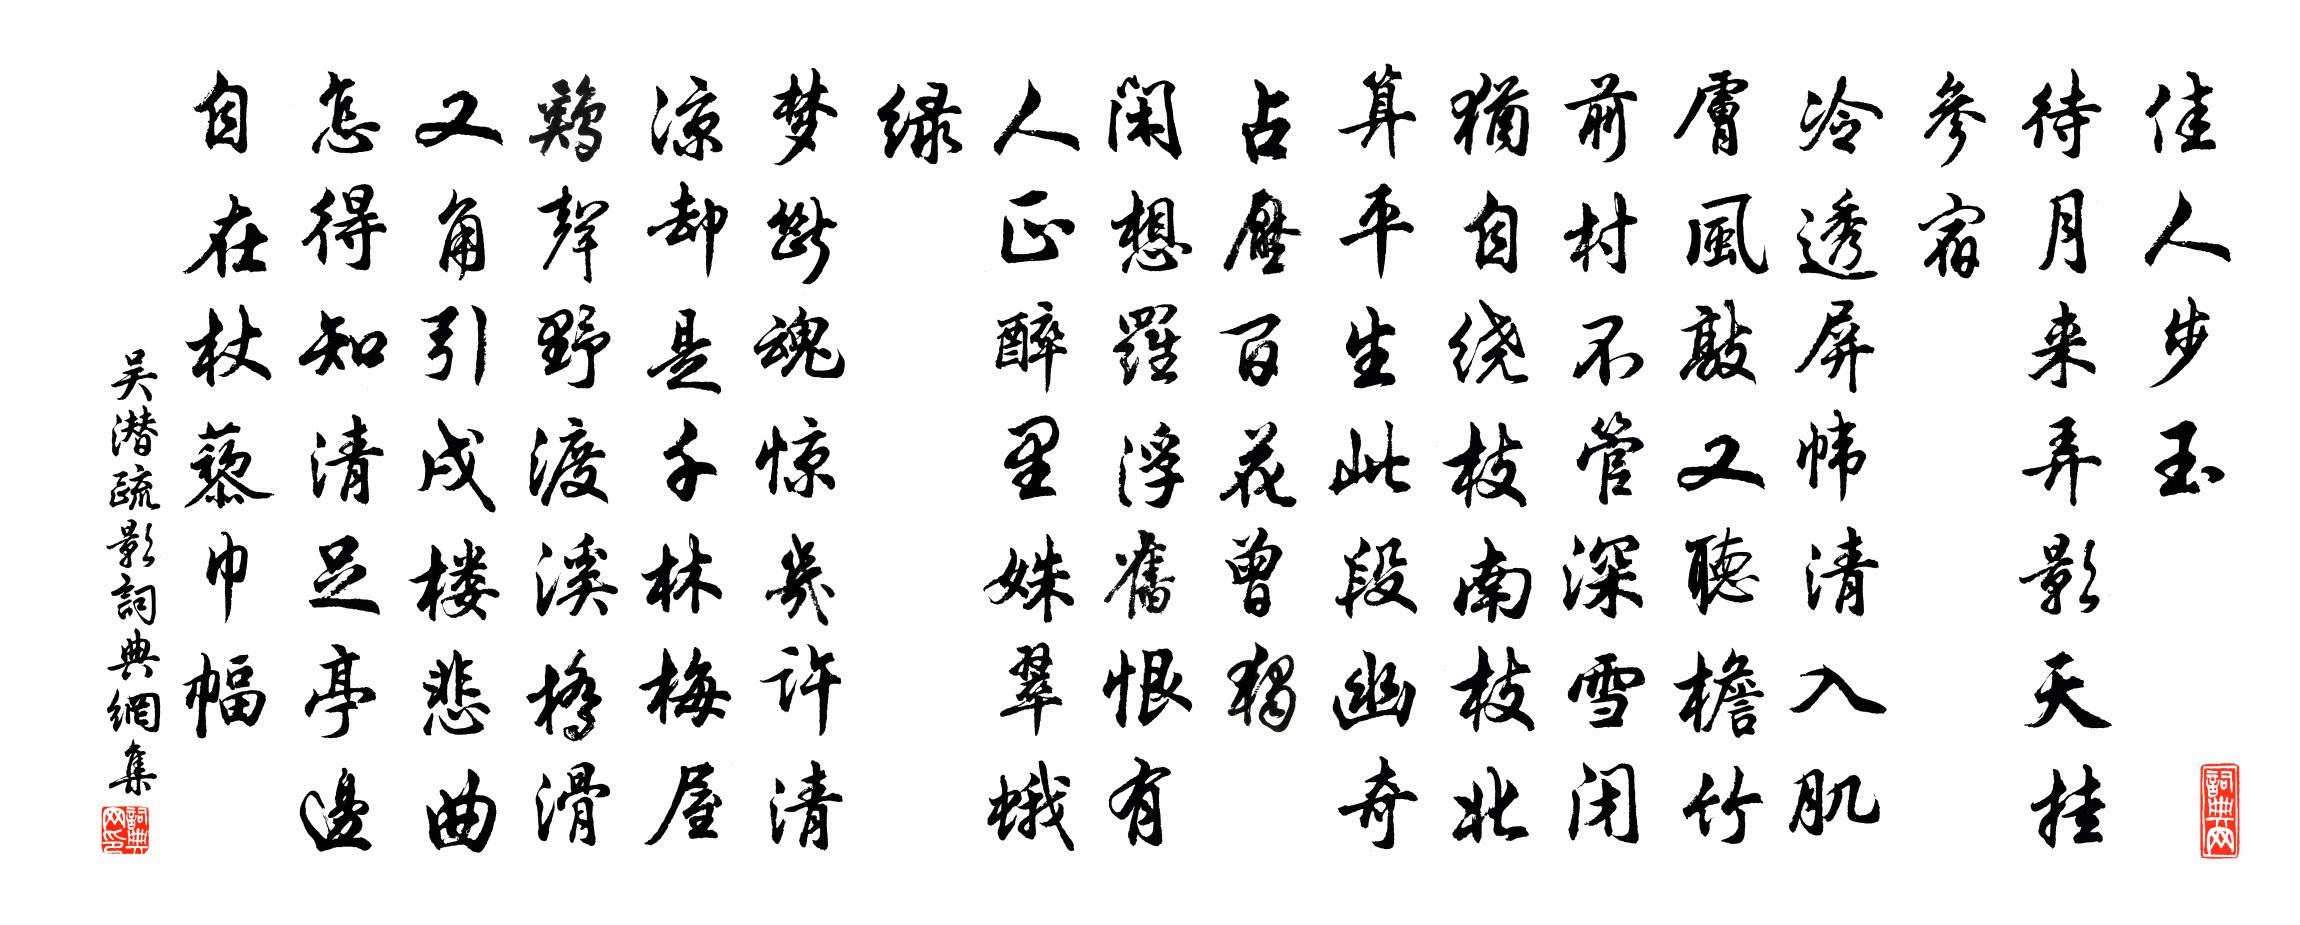 佳人步玉
待月来弄影天挂
參宿
冷透屏帏清入肌
膚風敲又聽檐竹
前村不管深雪闭
猶自绕枝南枝北
算平生此段幽奇
占壓百花曾獨
闲想羅浮舊恨有
人正醉里姝翠蛾
绿
梦斷魂惊幾许清
凉却是千林梅屋
鷄聲野渡溪橋滑
又角引戍楼悲曲
怎得知清足亭邊
自在杖藜巾幅
吴潜疏影詞典網集
詞典网